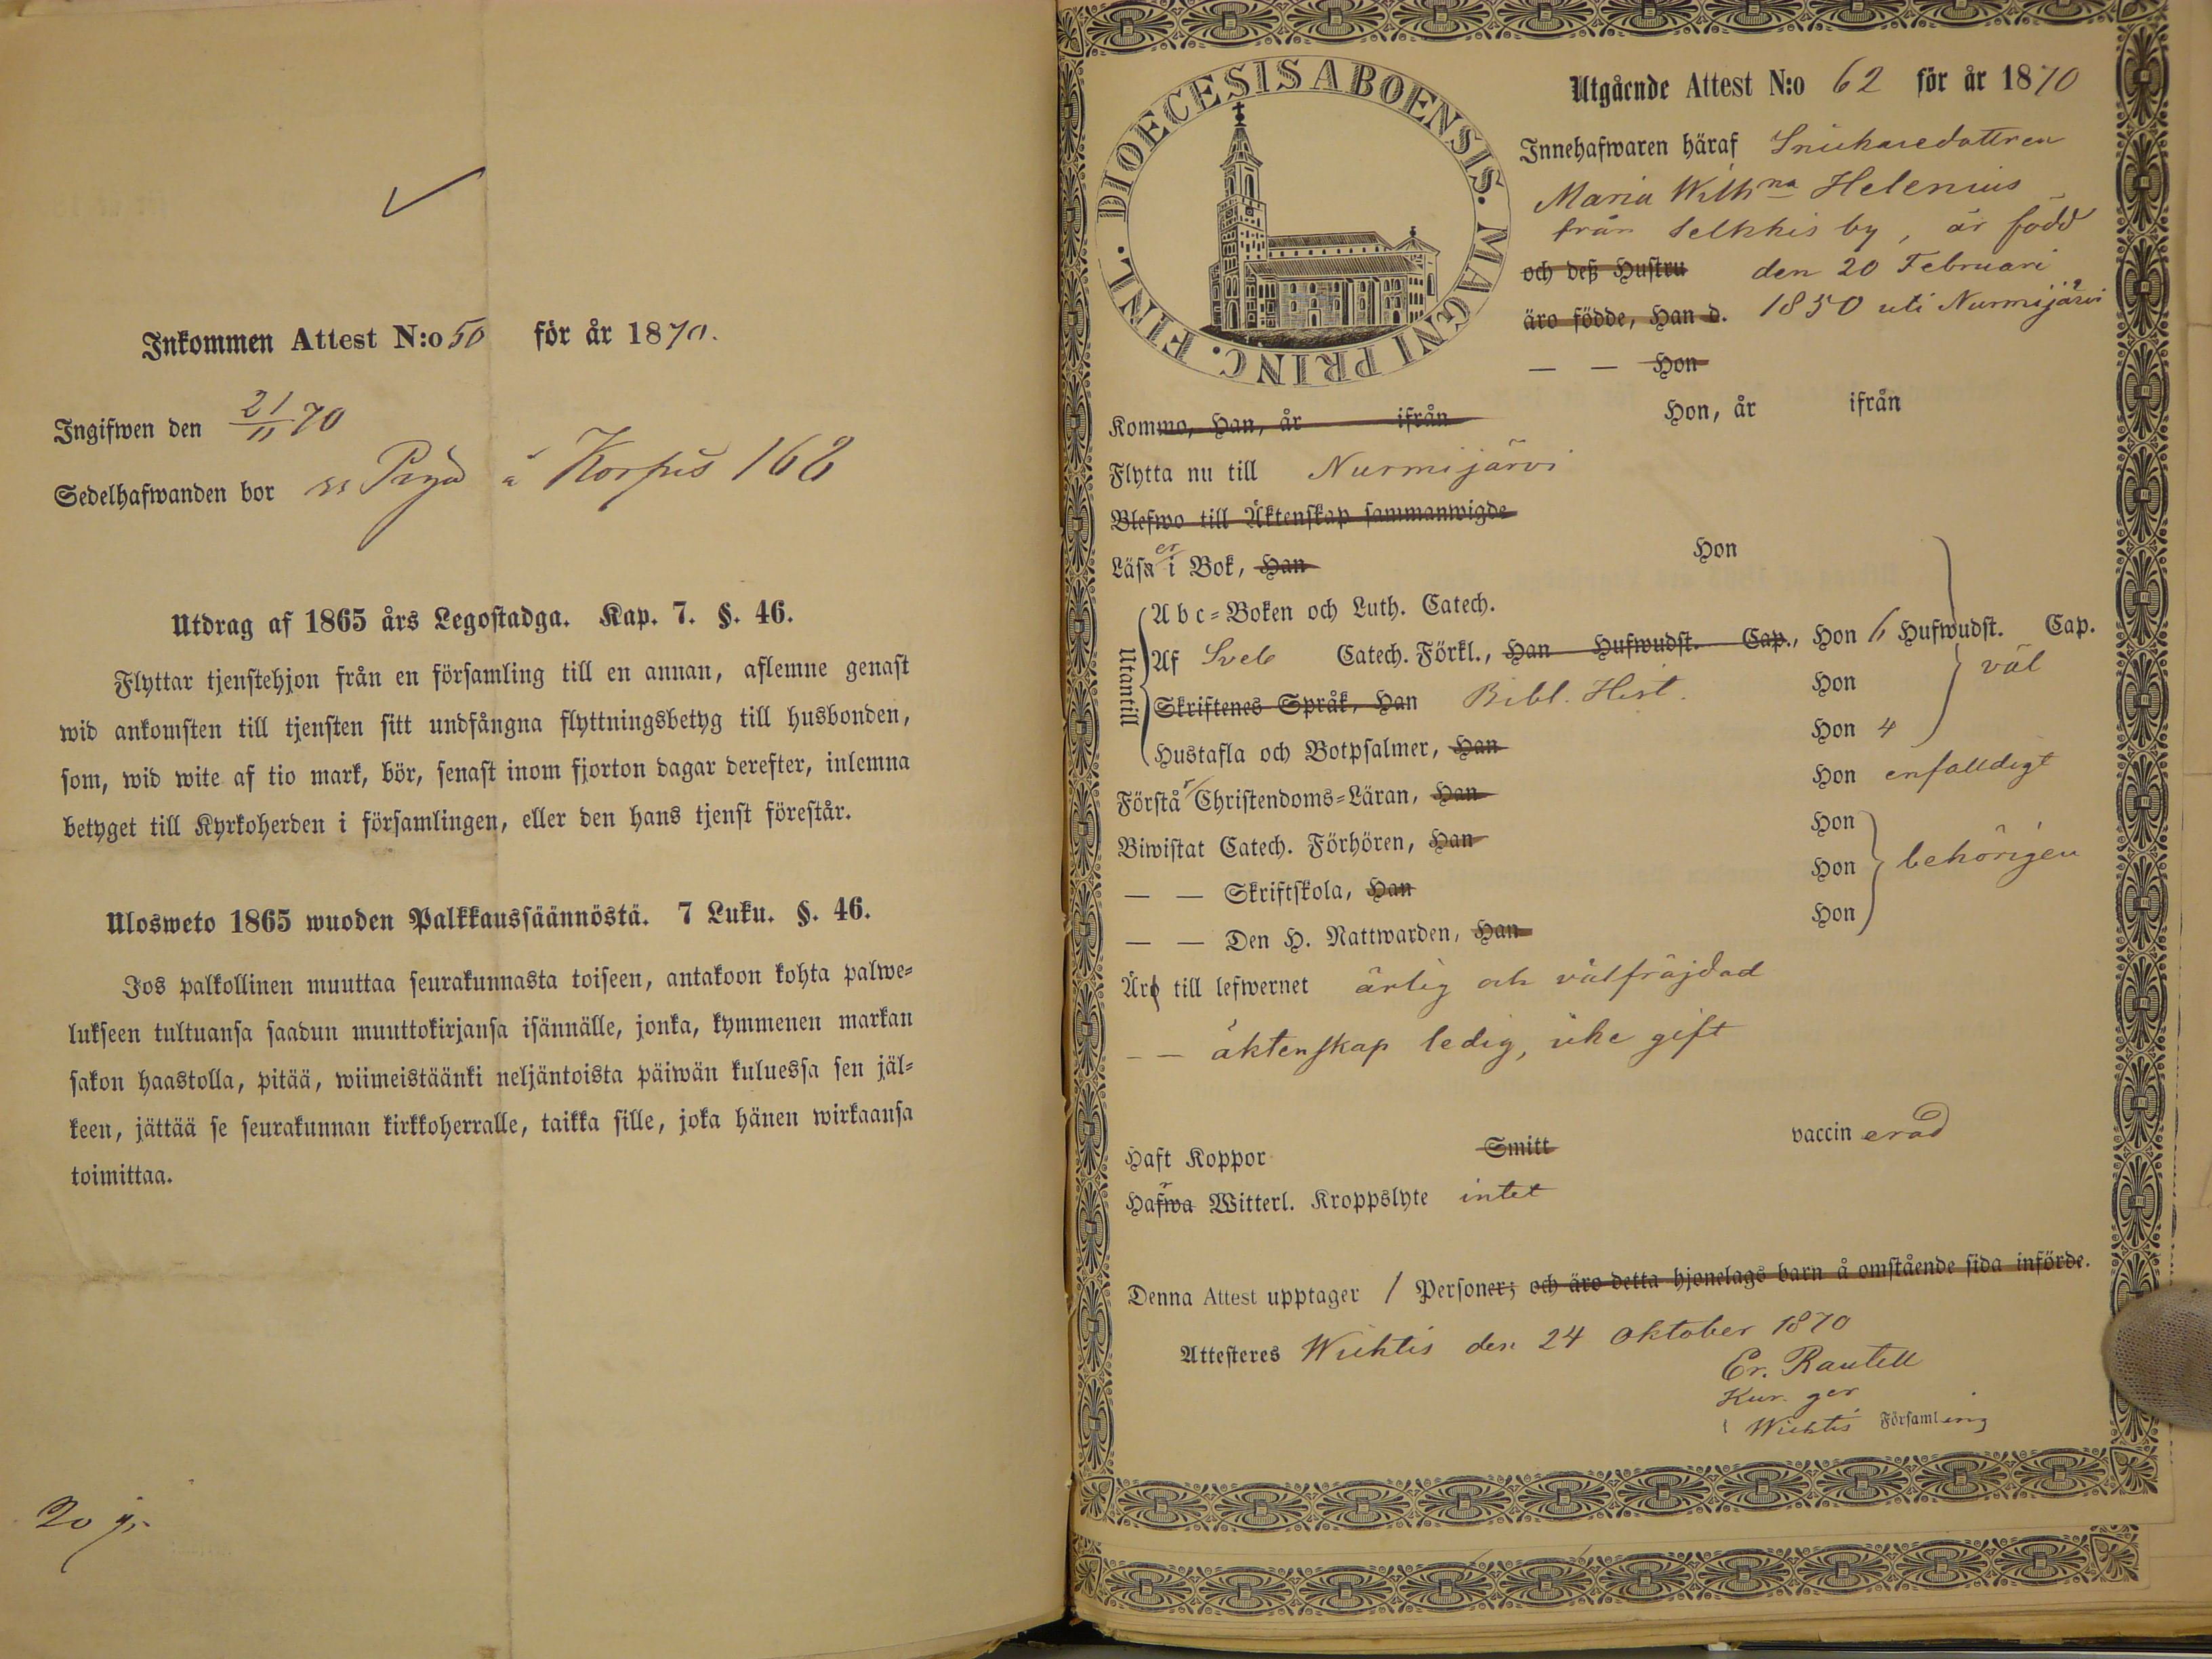 Inkommen Attest N:o 50 för år 1870.
Ingifwen den 21/11 70
Sedelhafwanden bor å 162
Utdrag af 1865 års Legostadga. Kap. 7. §. 46.
Flyttar tjenstehjon från en församling till en annan, aflemne genast
wid ankomsten till tjensten sitt undfångna flyttningsbetyg till husbonden,
som, wid wite af tio mark, bör, senast inom fjorton dagar derefter, inlemna
betyget till Kyrkoherden i församlingen, eller den hans tjenst förestår.
Ulosweto 1865 wuoden Palkkaussäännöstä. 7 Luku. §. 46.
Jos palkollinen muuttaa seurakunnasta toiseen, antakoon kohta palwe=
lukseen tultuansa saadun muuttokirjansa isännälle, jonka, kymmenen markan
sakon haastolla, pitää, wiimeistäänki neljäntoista päiwän kuluessa sen jäl=
keen, jättää se seurakunnan kirkkoherralle, taikka sille, joka hänen wirkaansa
toimittaa.
DIOECESIS ABOENSIS. MAGNI PRINC. FINL.
Utgående Attest N:o 62 för år 1870
Innehafwaren häraf Snickaredottren
Maria Wilhna Helenius
från Selkkis by, är född
och deß Hustru den 20 Februari
äro födde, Han d. 1850 uti Nurmijärvi
— — Hon
Kommo, Han, år ifrån Hon, år ifrån
Flytta nu till Nurmijärvi
Blefwo till Äktenskap sammanwigde
Läsa er i Bok, Han Hon
Utantill
A b c=Boken och Luth. Catech.
Af Sveb Catech. Förkl., Han Hufwudst. Cap., Hon 6 Hufwudst. Cap.
Skriftenes Språk, Han Bibl. Hist. Hon väl
Hustafla och Botpsalmer, Han Hon 4
Förstår Christendoms=Läran, Han Hon enfalldigt
Biwistat Catech. Förhören, Han Hon
— — Skriftskola, Han Hon behörigen
— — Den H. Nattwarden, Han Hon
Äro till lefwernet ärlig och välfräjdad
— — äktenskap ledig, icke gift
Haft Koppor Smitt vaccinerad
Hafwa Witterl. Kroppslyte intet
Denna Attest upptager 1 Personer; och äro detta hjonelags barn å omstående sida införde.
Attesteres Wichtis den 24 Oktober 1870
Er. Rautell
i Wichtis Församling